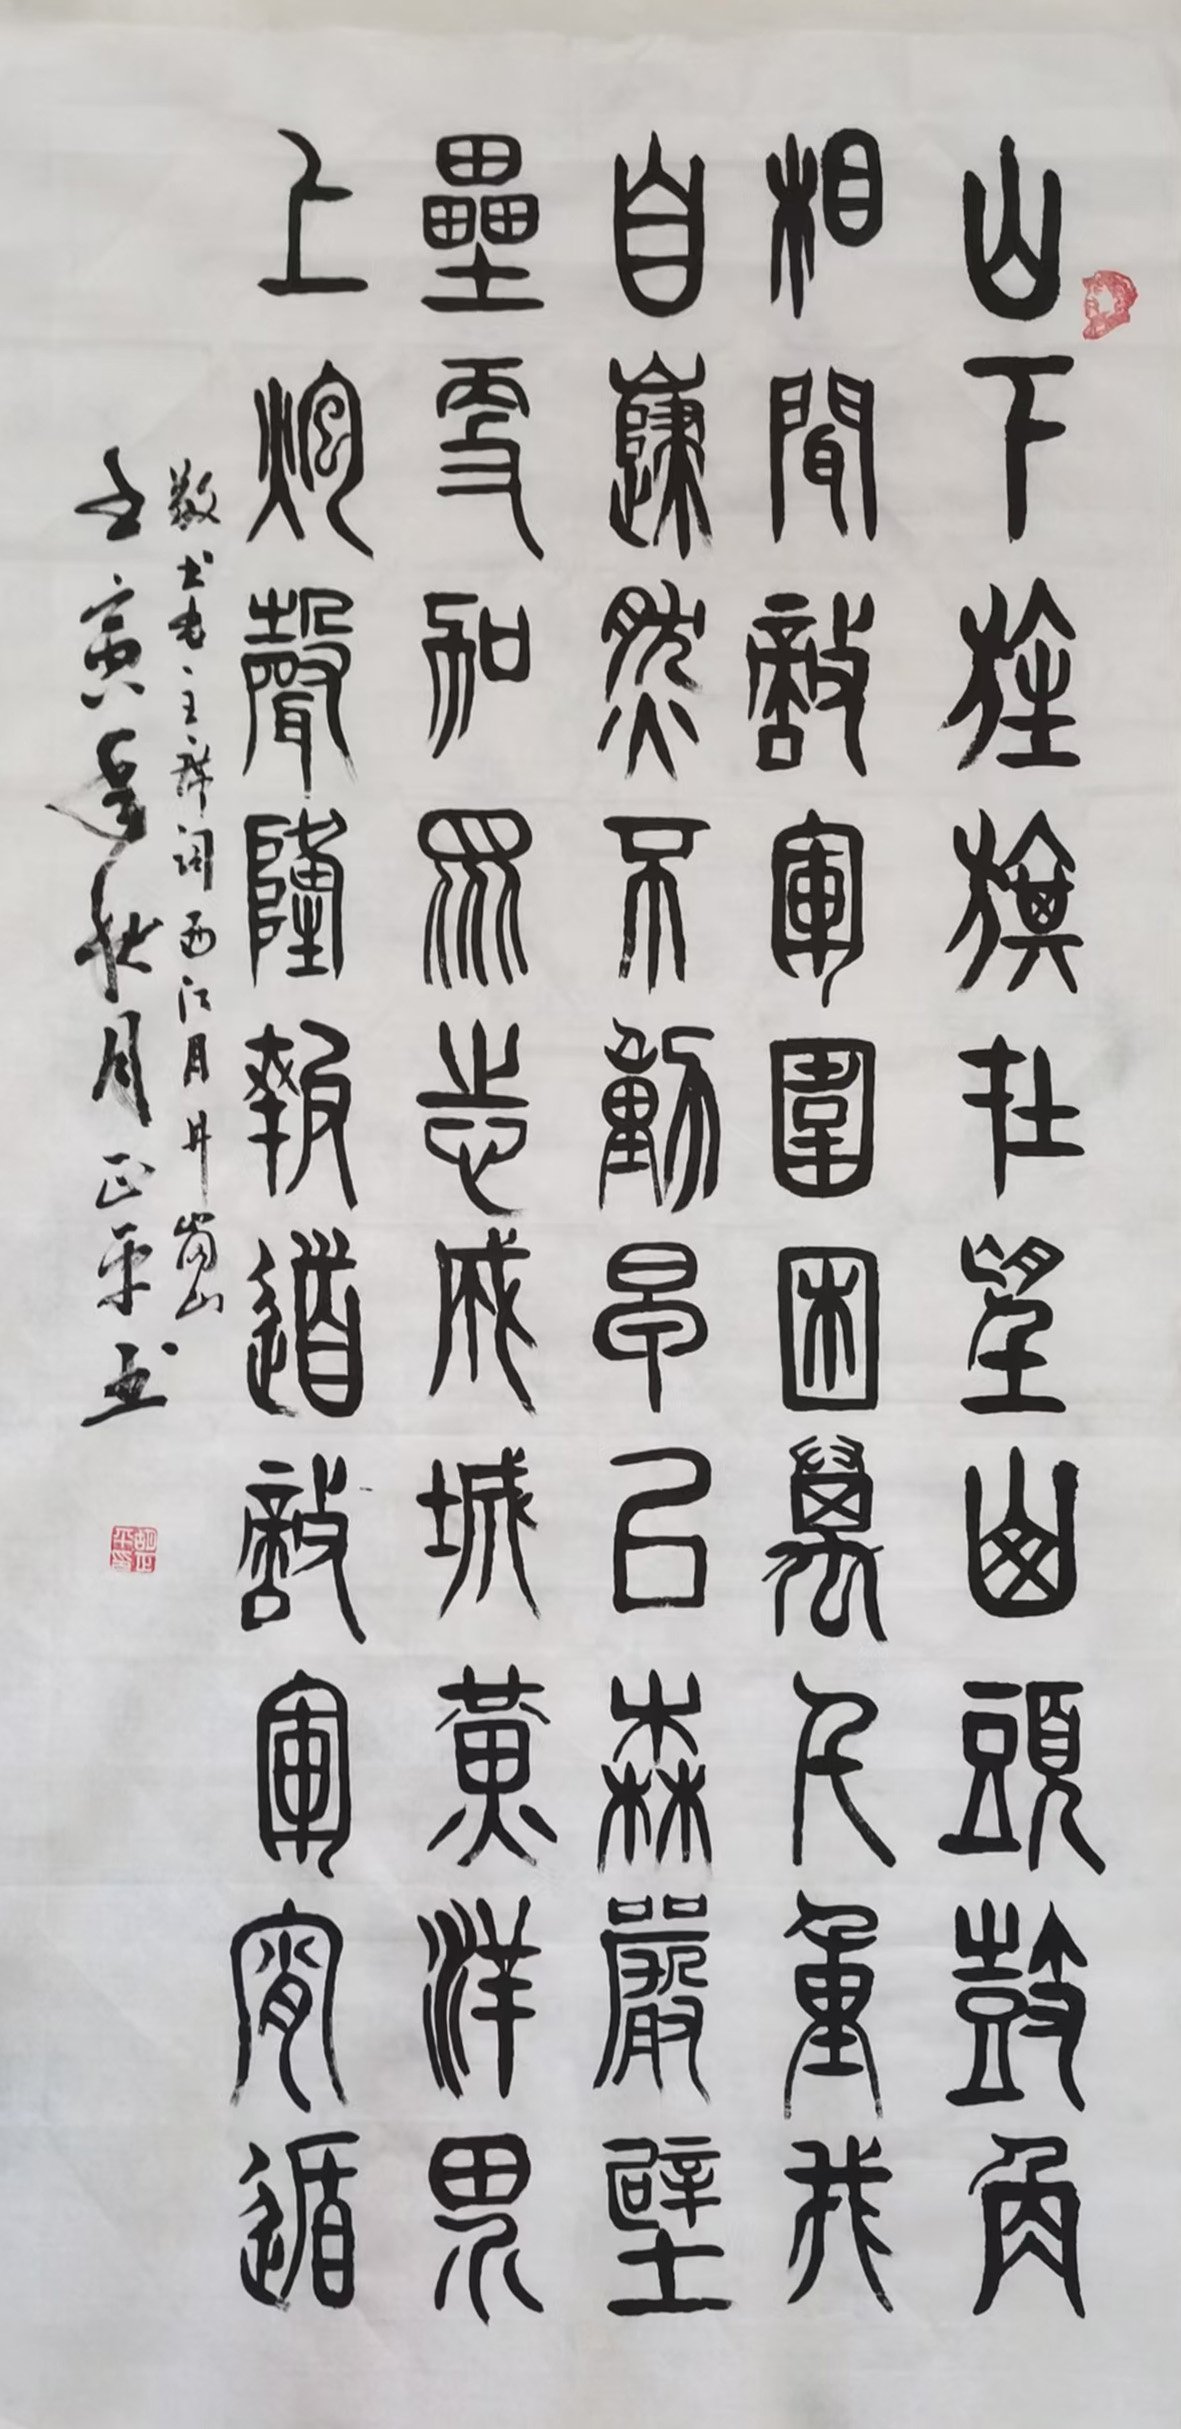 山下旌旗在望山頭鼓角
相聞敵軍圍困萬千重我
自巋然不動早已森嚴壁
壘更加眾志成城黃洋界
上炮聲隆報道敵軍宵遁
敬书毛主席词西江月井崗山
壬寅年秋月正平书
胡正平印